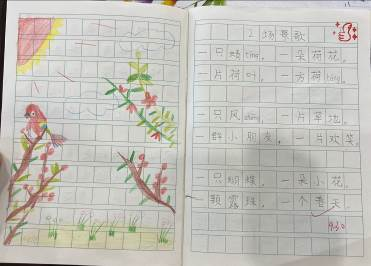 2 场景歌
一只蜻tíng，一朵荷花。
一片荷叶，一方荷táng。
一只风zhēng，一片草地。
一群小朋友，一片欢笑。
一只蝴蝶，一朵小花。
一颗露珠，一个春天。
9.30